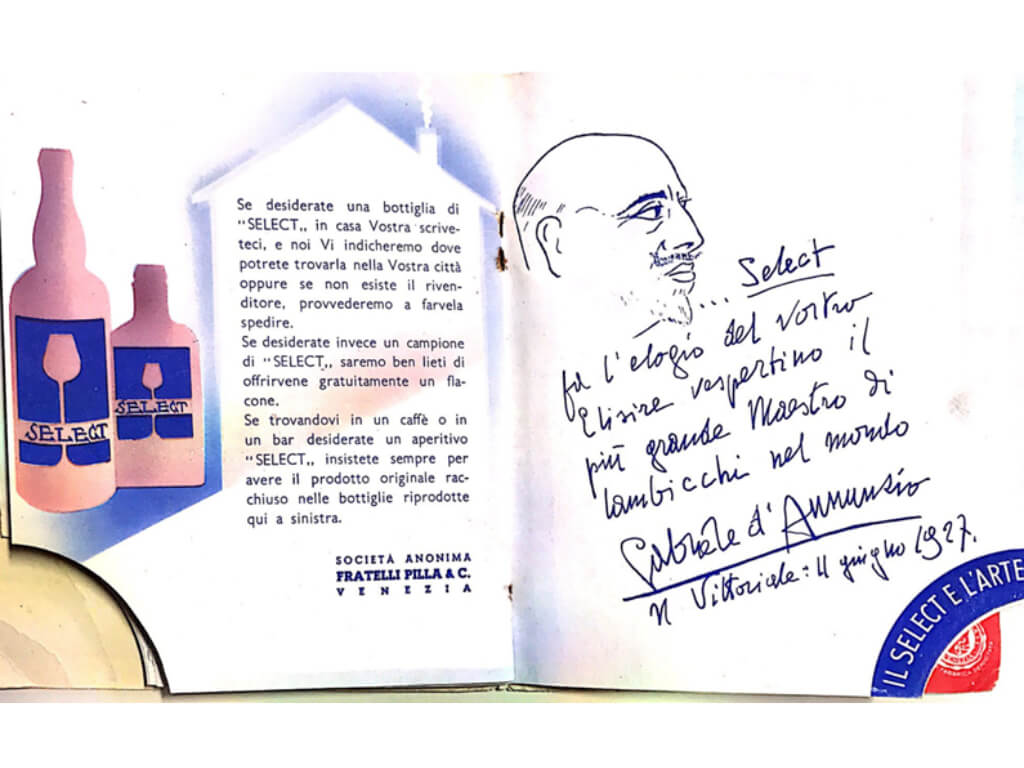 Se desiderate una bottiglia di
"SELECT„ in casa Vostra scrive-
teci, e noi Vi indicheremo dove
potrete trovarla nella Vostra città
oppure se non esiste il riven-
ditore, provvederemo a farvela
spedire.
Se desiderate invece un campione
di "SELECT„ saremo ben lieti di
offrirvene gratuitamente un fla-
cone.
Se trovandovi in un caffè o in
un bar desiderate un aperitivo
"SELECT„ insistete sempre per
avere il prodotto originale rac-
chiuso nelle bottiglie riprodotte
qui a sinistra.
SOCIETÀ ANONIMA
FRATELLI PILLA & C.
VENEZIA
SELECT
SELECT
... Select
fa l'elogio del vostro
Elisire vespertino il
più grande Maestro di
lambicchi nel mondo
Gabriele d'Annunzio
Il Vittoriale: 11 giugno 1927.
IL SELECT E L'ARTE